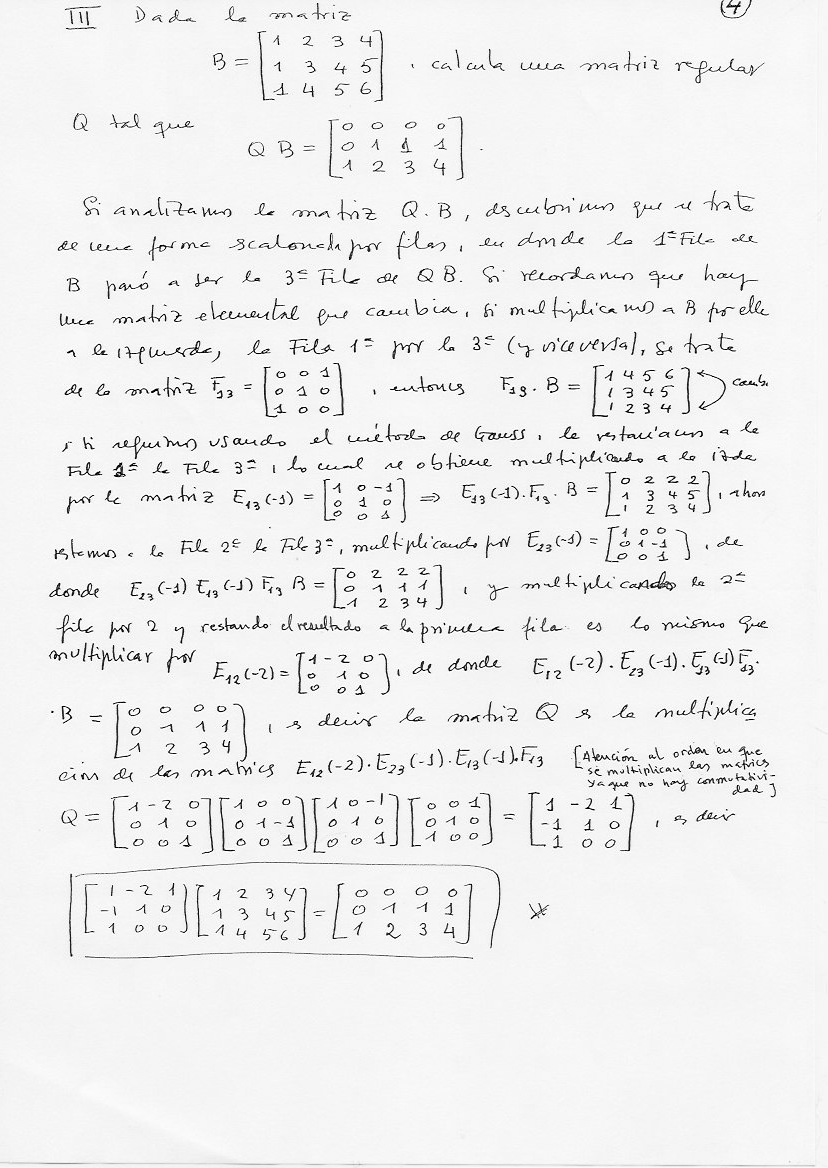 III Dada la matriz (4)
B = [1 2 3 4; 1 3 4 5; 1 4 5 6], calcula una matriz regular
Q tal que
Q B = [0 0 0 0; 0 1 1 1; 1 2 3 4].
Si analizamos la matriz Q.B, descubrimos que se trata
de una forma escalonada por filas, en donde la 1ª Fila de
B pasó a ser la 3ª Fila de QB. Si recordamos que hay
una matriz elemental que cambia, si multiplicamos a B por ella
a la izquierda, la Fila 1ª por la 3ª (y viceversa), se trata
de la matriz F₁₃ = [0 0 1; 0 1 0; 1 0 0], entonces F₁₃. B = [1 4 5 6; 1 3 4 5; 1 2 3 4]
y si seguimos usando el método de Gauss, le restaríamos a la
Fila 1ª la Fila 3ª, lo cual se obtiene multiplicando a la izda
por la matriz E₁₃(-1) = [1 0 -1; 0 1 0; 0 0 1] ⇒ E₁₃(-1). F₁₃. B = [0 2 2 2; 1 3 4 5; 1 2 3 4], ahora
restamos a la Fila 2ª la Fila 3ª, multiplicando por E₂₃(-1) = [1 0 0; 0 1 -1; 0 0 1], de
donde E₂₃(-1) E₁₃(-1) F₁₃ B = [0 2 2 2; 0 1 1 1; 1 2 3 4], y multiplicando la 2ª
fila por 2 y restando el resultado a la primera fila es lo mismo que
multiplicar por E₁₂(-2) = [1 -2 0; 0 1 0; 0 0 1], de donde E₁₂(-2). E₂₃(-1). E₁₃(-1) F₁₃.
.B = [0 0 0 0; 0 1 1 1; 1 2 3 4], es decir la matriz Q es la multiplica
ción de las matrices E₁₂(-2). E₂₃(-1). E₁₃(-1). F₁₃ [Atención al orden en que
se multiplican las matrices
ya que no hay conmutativi-
dad]
Q = [1 -2 0; 0 1 0; 0 0 1] [1 0 0; 0 1 -1; 0 0 1] [1 0 -1; 0 1 0; 0 0 1] [0 0 1; 0 1 0; 1 0 0] = [1 -2 1; -1 1 0; 1 0 0], es decir
[1 -2 1; -1 1 0; 1 0 0] [1 2 3 4; 1 3 4 5; 1 4 5 6] = [0 0 0 0; 0 1 1 1; 1 2 3 4]